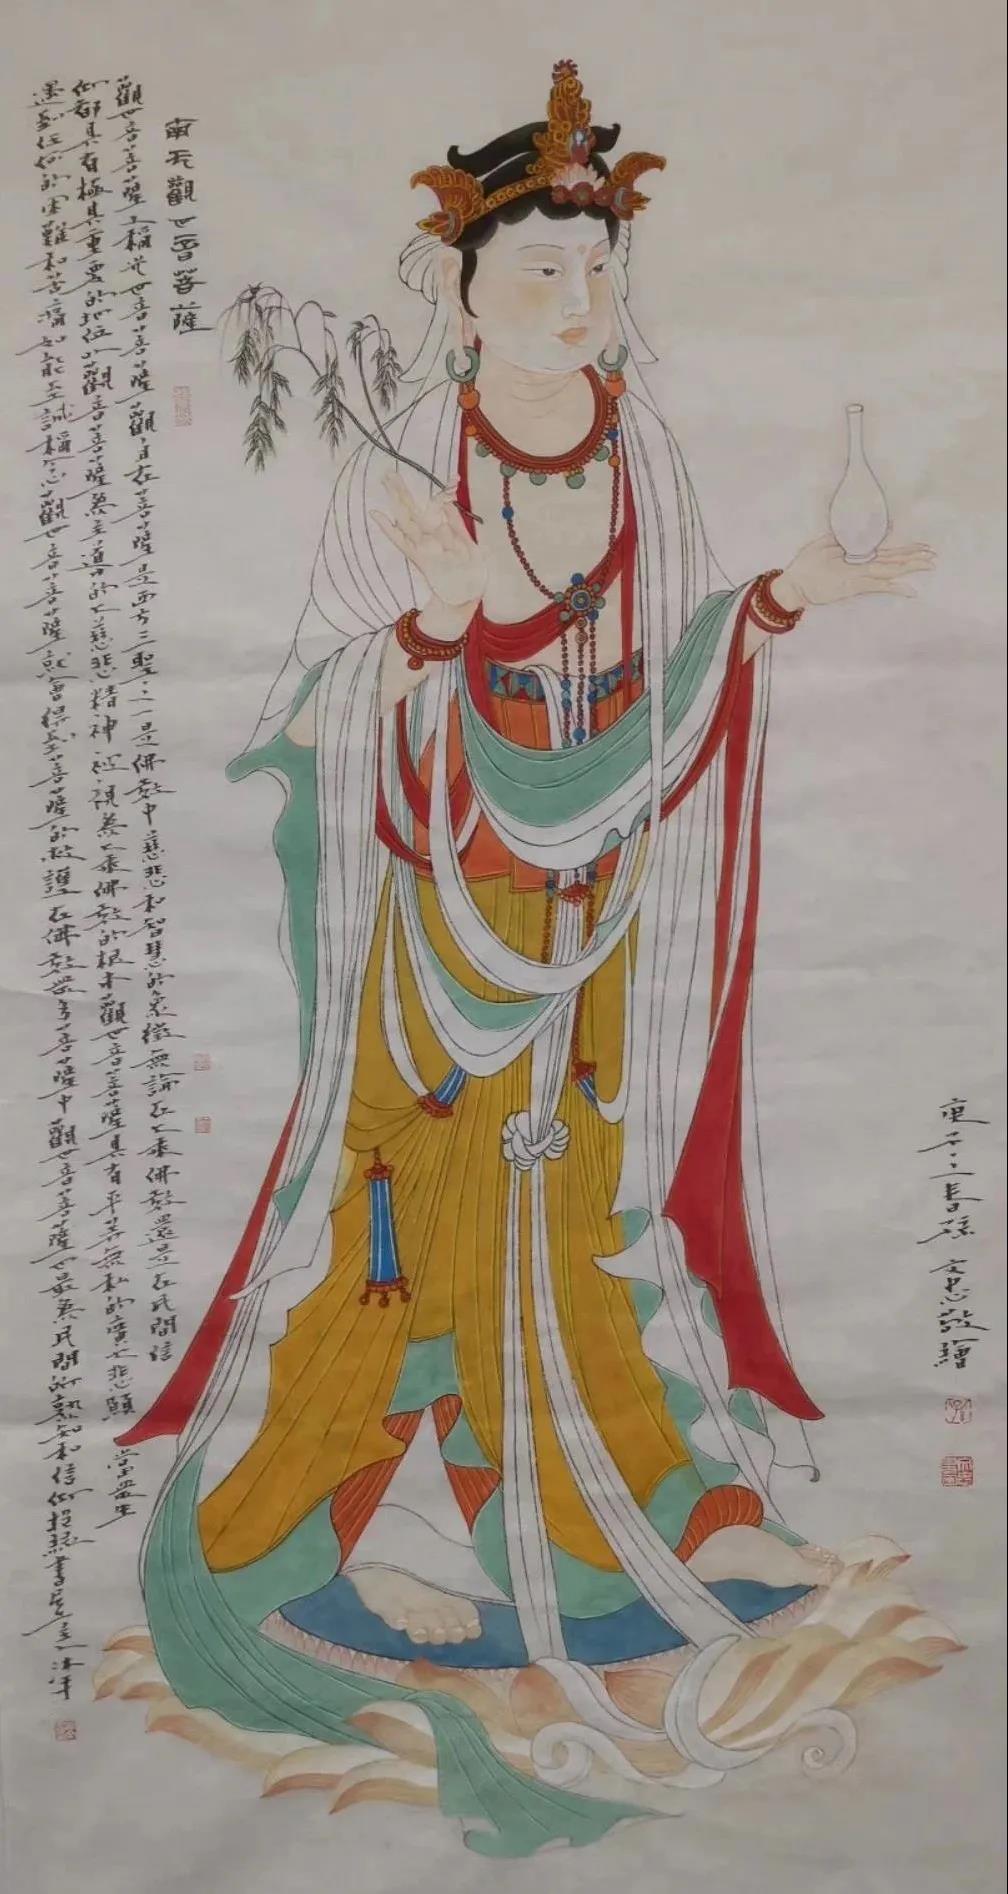 南无觀世音菩薩
觀世音菩薩又稱光世音菩薩觀自在菩薩是西方三聖之一是佛教中慈悲和智慧的象徵無論在大乘佛教還是在民間信
仰都具有極其重要的地位以觀音菩薩為主導的大慈悲精神被視為大乘佛教的根本觀世音菩薩具有平等無私的廣大悲願當眾生
遇到任何的困難和苦痛如能至誠稱念觀世音菩薩就會得到菩薩的救護在佛教眾多菩薩中觀世音菩薩也最為民間所熟知和信仰
庚子之春孫文忠敬繪